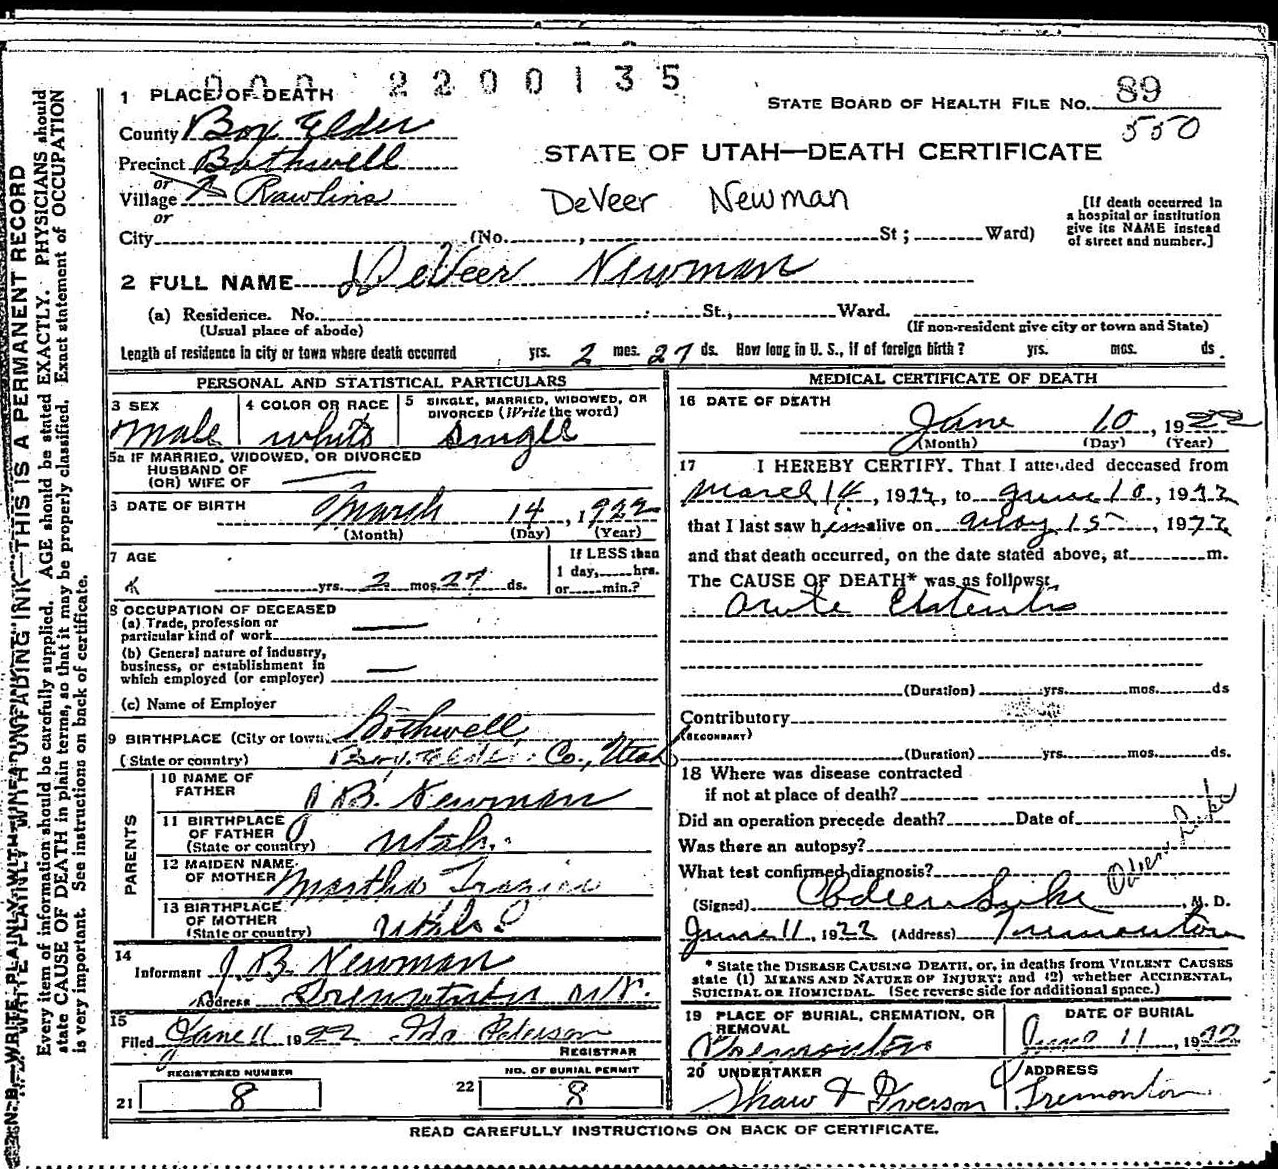 000 2200135
1 PLACE OF DEATH
STATE BOARD OF HEALTH FILE No. 89
550
County Box Elder
Precinct Bothwell
or
Village Rawlins
or
STATE OF UTAH—DEATH CERTIFICATE
DeVeer Newman
[If death occurred in a hospital or institution give its NAME instead of street and number.]
City (No. , St ; Ward)
2 FULL NAME DeVeer Newman
(a) Residence. No. St., Ward.
(Usual place of abode) (If non-resident give city or town and State)
Length of residence in city or town where death occurred yrs. 2 mos. 27 ds. How long in U. S., if of foreign birth? yrs. mos. ds.
PERSONAL AND STATISTICAL PARTICULARS
3 SEX
Male
4 COLOR OR RACE
white
5 SINGLE, MARRIED, WIDOWED, OR DIVORCED (Write the word)
Single
5a IF MARRIED, WIDOWED, OR DIVORCED
HUSBAND OF
(OR) WIFE OF
6 DATE OF BIRTH March 14, 1922
(Month) (Day) (Year)
7 AGE
yrs. 2 mos. 27 ds.
If LESS than
1 day, hrs.
or min.?
8 OCCUPATION OF DECEASED
(a) Trade, profession or
particular kind of work
(b) General nature of industry,
business, or establishment in
which employed (or employer)
(c) Name of Employer
9 BIRTHPLACE (City or town) Bothwell
(State or country) Box Elder Co., Utah
PARENTS
10 NAME OF FATHER J. B. Newman
11 BIRTHPLACE OF FATHER (State or country) Utah.
12 MAIDEN NAME OF MOTHER Martha
13 BIRTHPLACE OF MOTHER (State or country) Utah
14
Informant J. B. Newman
Address Tremonton
15
Filed June 11 1922 Ida Peterson
REGISTRAR
REGISTERED NUMBER
21 8
NO. OF BURIAL PERMIT
22 8
MEDICAL CERTIFICATE OF DEATH
16 DATE OF DEATH
June 10, 1922
(Month) (Day) (Year)
17 I HEREBY CERTIFY, That I attended deceased from
March 14, 1922, to June 10, 1922
that I last saw him alive on May 15, 1922
and that death occurred, on the date stated above, at m.
The CAUSE OF DEATH* was as follows:
Acute
(Duration) yrs. mos. ds
Contributory
(SECONDARY)
(Duration) yrs. mos. ds.
18 Where was disease contracted
if not at place of death?
Did an operation precede death? Date of
Was there an autopsy?
What test confirmed diagnosis?
(Signed) , M. D.
June 11, 1922 (Address) Tremonton
* State the DISEASE CAUSING DEATH, or, in deaths from VIOLENT CAUSES
state (1) MEANS AND NATURE OF INJURY; and (2) whether ACCIDENTAL,
SUICIDAL OR HOMICIDAL. (See reverse side for additional space.)
19 PLACE OF BURIAL, CREMATION, OR REMOVAL
Tremonton
DATE OF BURIAL
June 11, 1922
20 UNDERTAKER
Shaw & Iverson
ADDRESS
Tremonton
READ CAREFULLY INSTRUCTIONS ON BACK OF CERTIFICATE.
N. B.—WRITE PLAINLY WITH UNFADING INK—THIS IS A PERMANENT RECORD
Every item of information should be carefully supplied. AGE should be stated EXACTLY. PHYSICIANS should
state CAUSE OF DEATH in plain terms, so that it may be properly classified. Exact statement of OCCUPATION
is very important. See instructions on back of certificate.